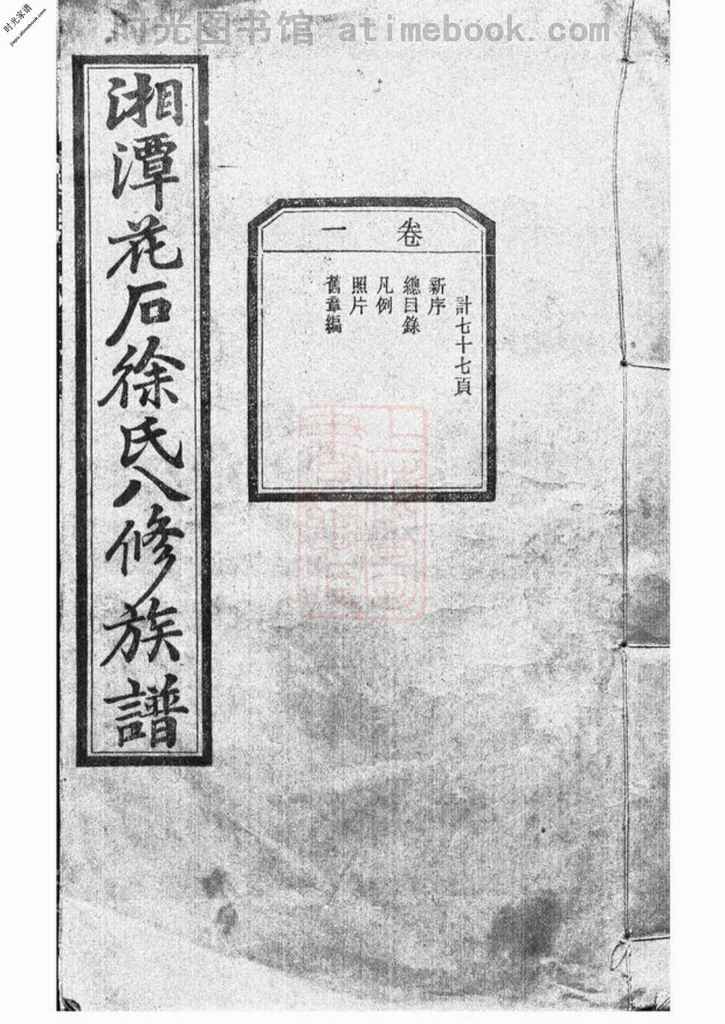 时光图书馆 - atimebook.com
时光家谱
jiapu.atimebook.com
湘潭花石徐氏八修族譜
卷一
計七十七頁
新序
總目錄
凡例
照片
舊章編